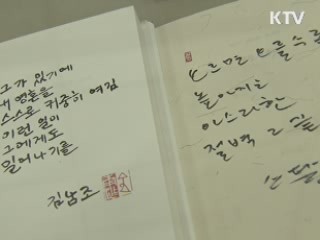 KTV
그가 있기에
내 영혼을
스스로 귀중히 여김
이런 일이
그에게도
일어나기를
김남조
오르면 오를수록
높아지는
아스라한
절벽 그